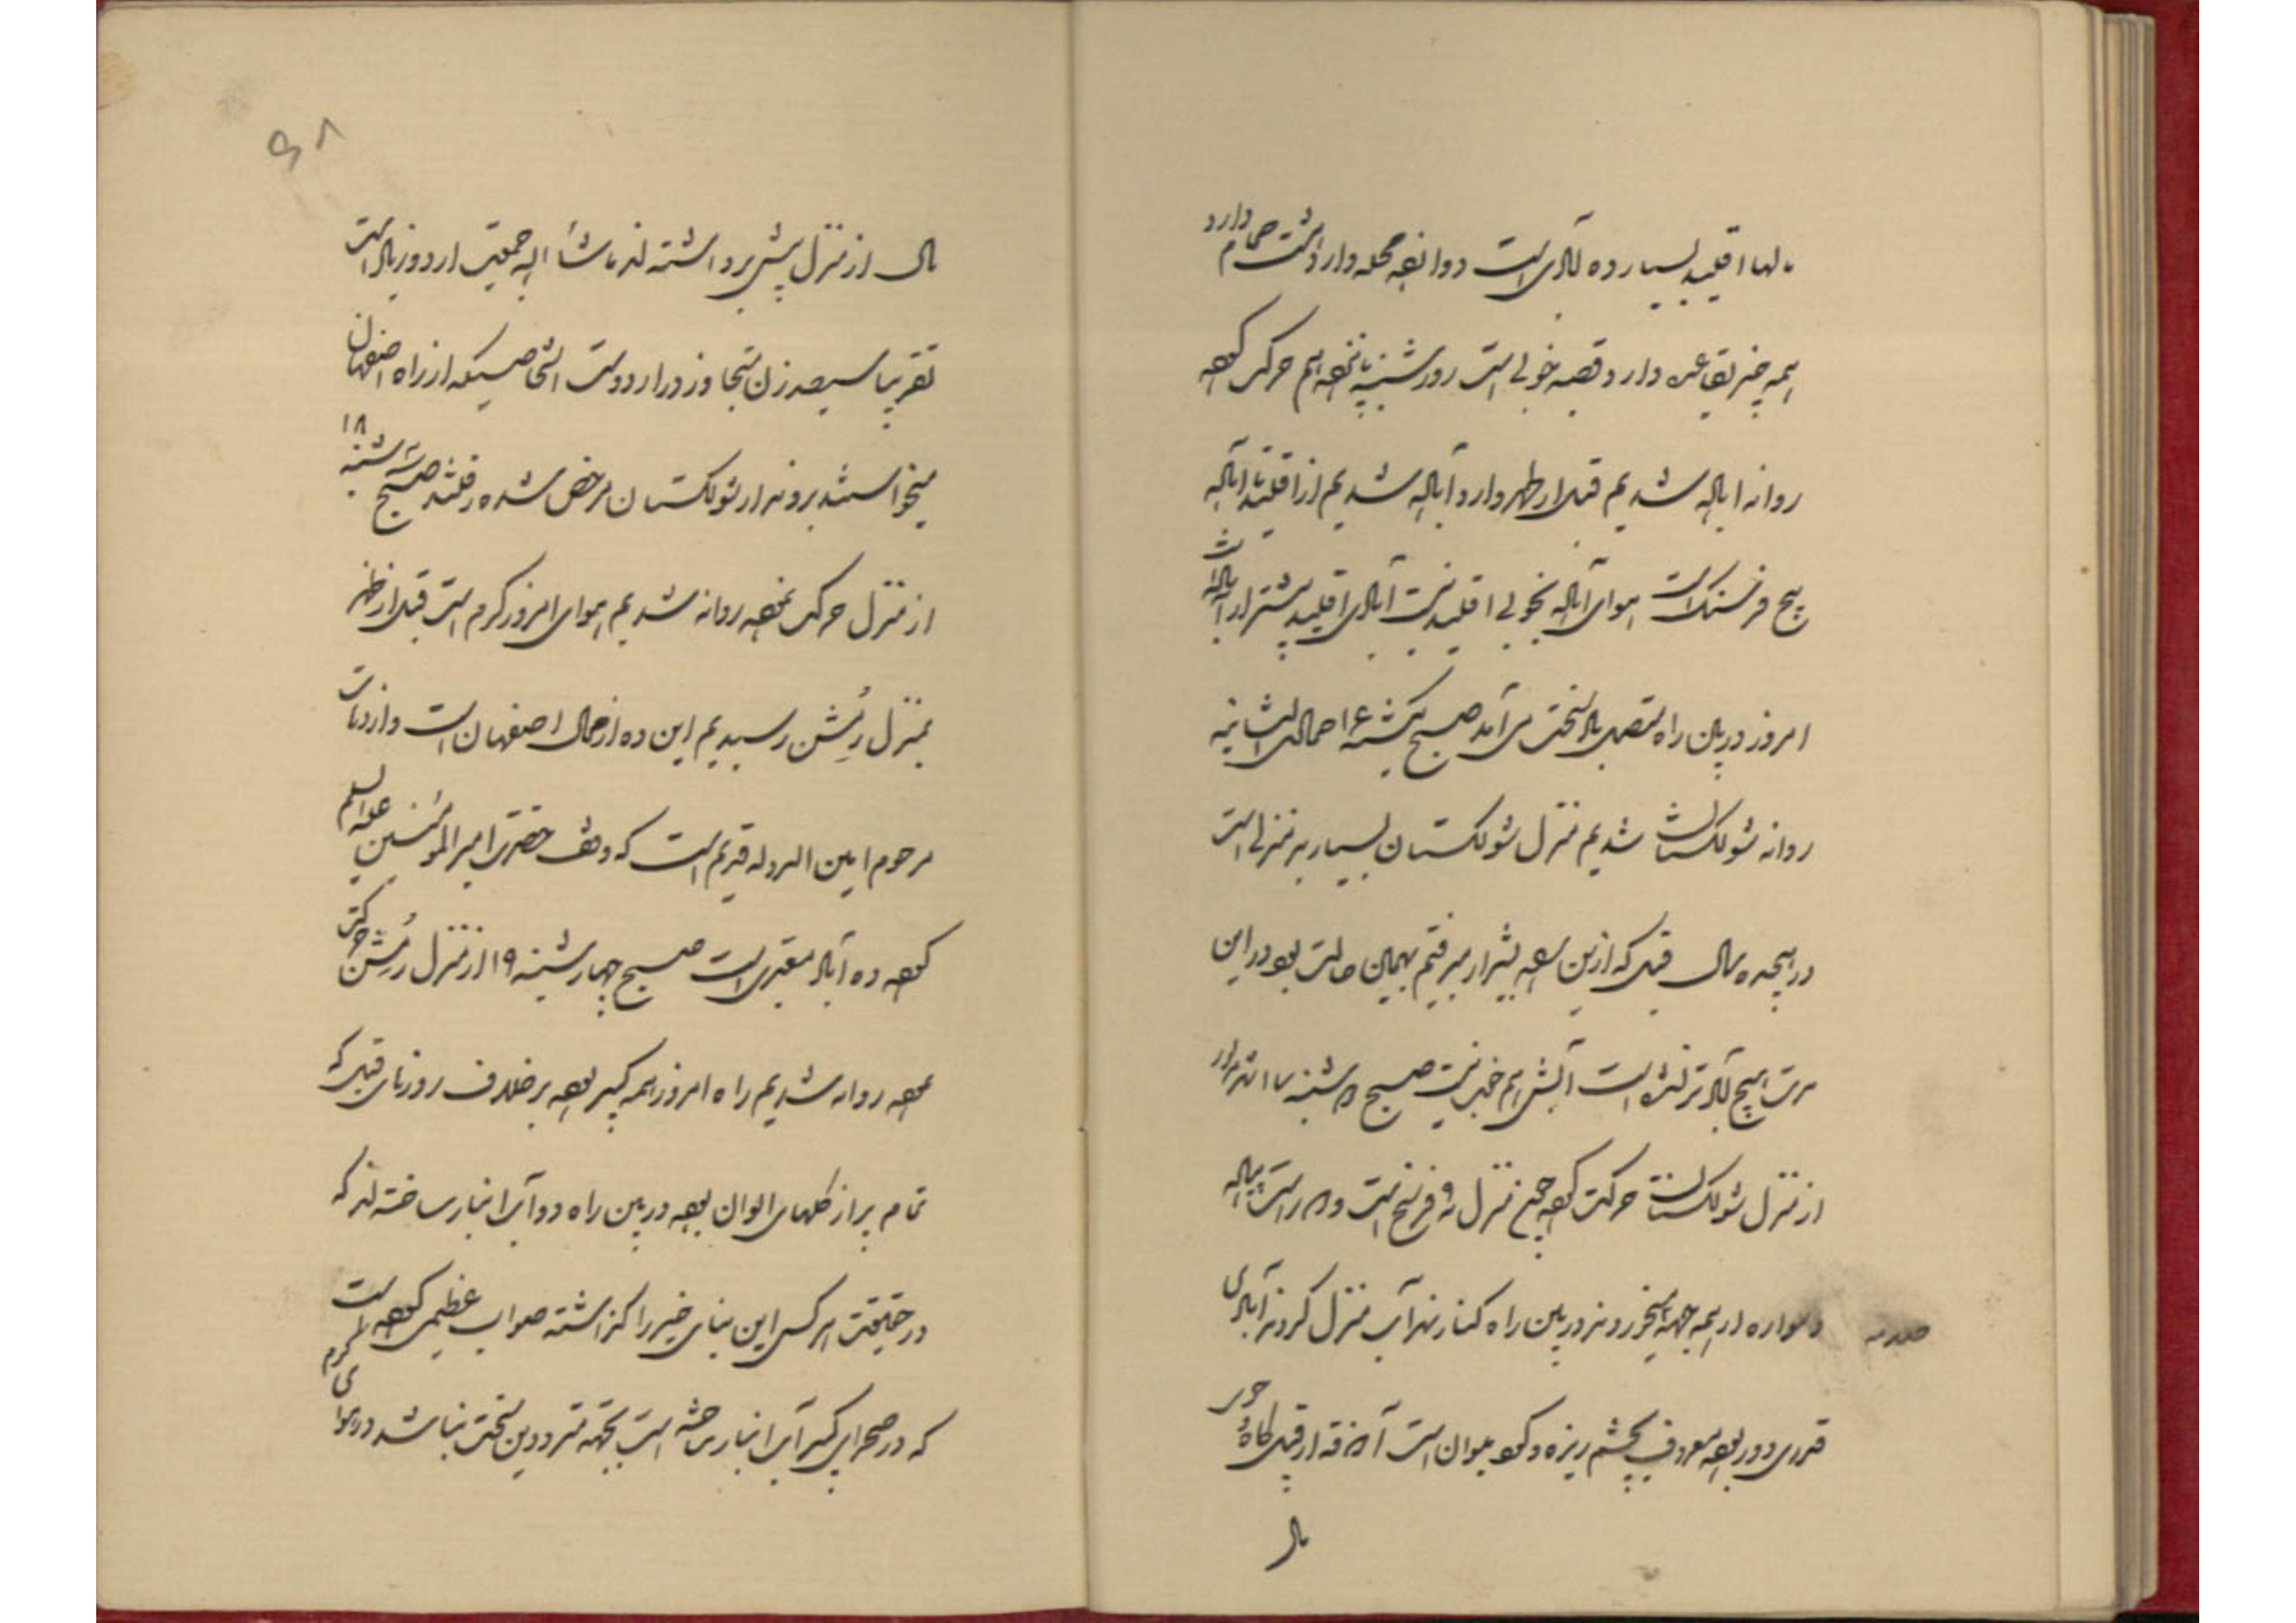 اقلید بسیار ده آبادی است دوازده محله دارد هشت حمام دارد
همه چیز بقاعده دارد قصبه خوبی است روز شنبه پانزدهم حرکت کرده
روانه اباده شدیم قبل از ظهر وارد آباده شدیم از اقلید تا آباده
پنج فرسنگ است هوای آباده بخوبی اقلید نیست آبادی اقلید بیشتر از آباده است
امروز در بین راه متصل باد سختی می آمد صبح یکشنبه ۱۶ جمادی الثانیه
روانه شولکستان شدیم منزل شولکستان بسیار بد منزلی است
در پنجاه سال قبل که ازین بشیراز میرفتم بهمین حالت بود در این
مدت هیچ آبادتر نشده است آبش هم خوب نیست صبح دوشنبه ۱۷
از منزل شولکستان حرکت کرده منزل نه فرسخ است و دو راست پیاده
و سواره از همه جهة میخورونند در بین راه کنار نهر آب منزل کردند آبادی
قدری دور بوده معروف بچشم ریزه و کم میوان است آذوقه از قبیل کاه و جو
سال
۹۸
سال از منزل پیش برداشته اند ماشاء الله جمعیت اردو زیاد است
تقریبا سیصد زن متجاوز در اردو است اشخاصیکه از راه اصفهان
میخواستند بروند از شولکستان مرخص شده رفتند صبح سه شنبه ۱۸
از منزل حرکت نموده روانه شدیم هوای امروز گرم است قبل از ظهر
بمنزل رُمِشن رسیدیم این ده از محال اصفهان است و از دهات
مرحوم امین الدوله قدیم است که وقف حضرت امیر المومنین علیه السلام
کرده ده آباد معتبری است صبح چهارشنبه ۱۹ از منزل رُمِشن حرکت
نموده روانه شدیم راه امروز همه کبیر بوده برخلاف روزهای قبل که
تمام پر از گلهای الوان بوده در بین راه دو آب انبار ساخته اند که
در حقیقت هر کس این بنای خیر را گذاشته صواب عظیمی کرده است
که در صحرای کبیر آب انبار ساخته است بجهة مترددین سختی نباشد در هوای گرم